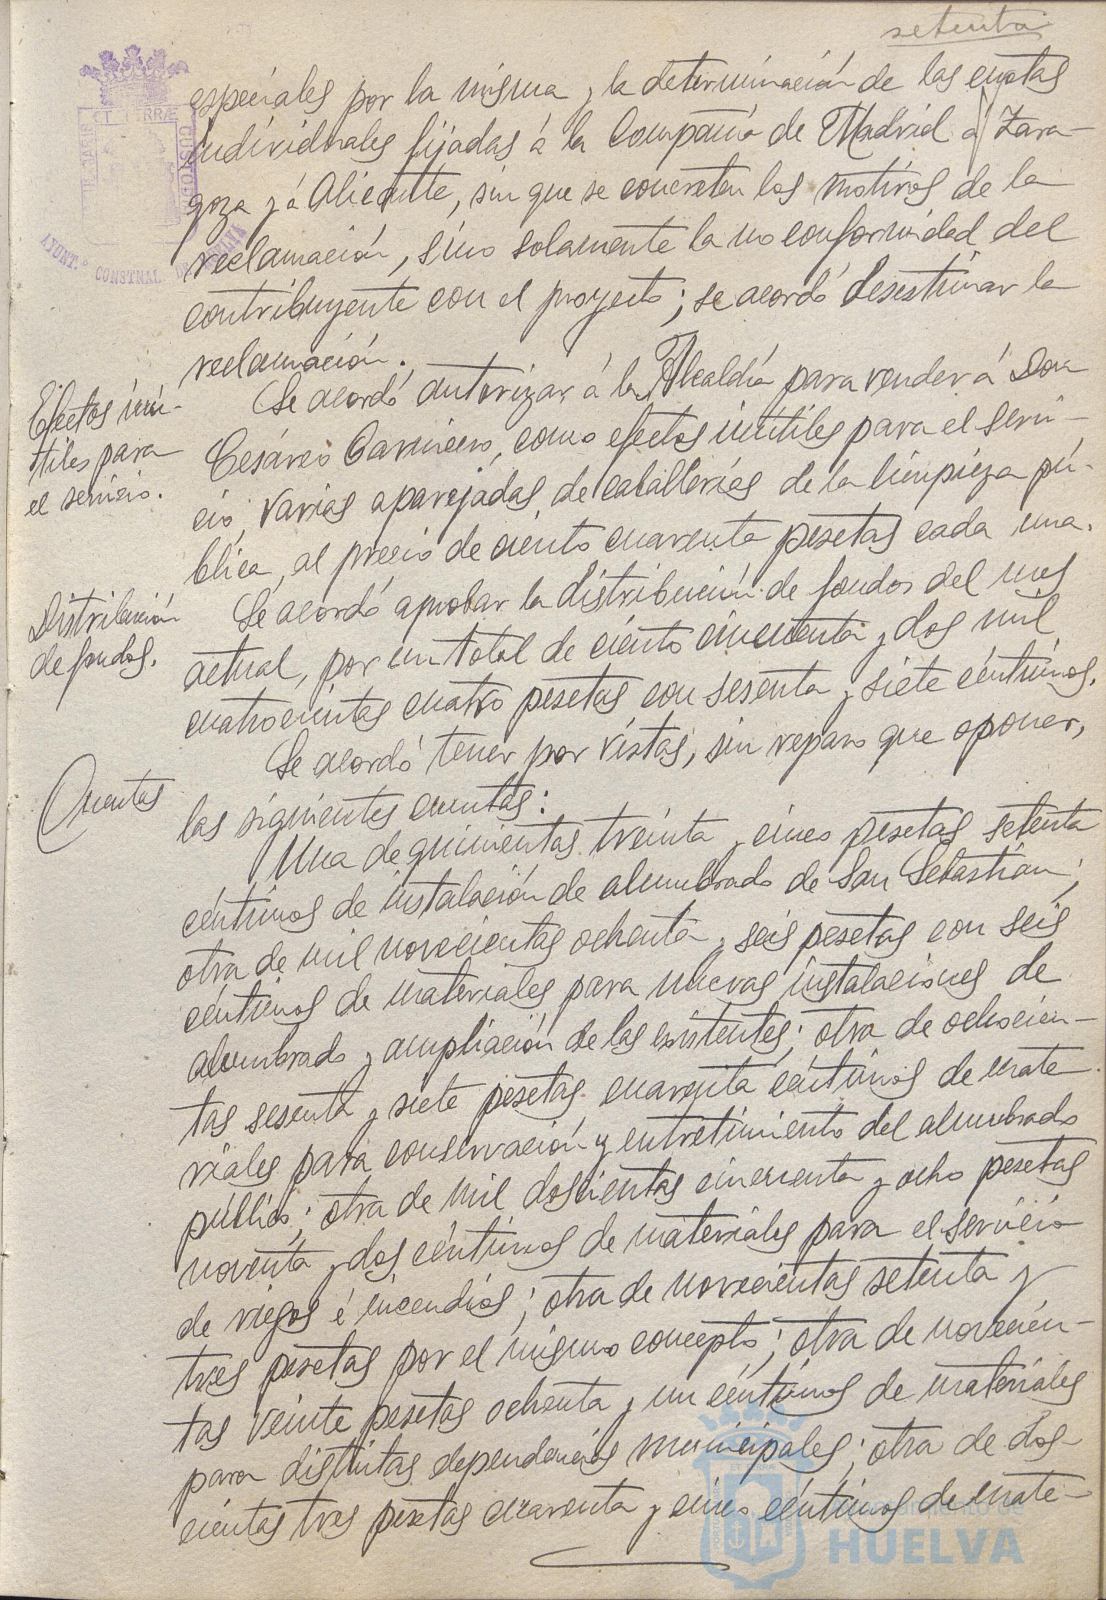 setenta
especiales por la misma y la determinación de las cuotas
individuales fijadas á la Compañía de Madrid á Zara-
goza y á Alicante, sin que se concreten los motivos de la
reclamación, sino solamente la no conformidad del
contribuyente con el proyecto; se acordó desestimar la
reclamación.
Efectos inú-
tiles para
el servicio.
Se acordó autorizar á la Alcaldía para vender á Don
Cesáreo Carnicero, como efectos inútiles para el servi-
cio, varias aparejadas de caballerías de la limpieza pú-
blica, al precio de ciento cuarenta pesetas cada una.
Distribución
de fondos.
Se acordó aprobar la distribución de fondos del mes
actual, por un total de ciento cincuenta y dos mil
cuatrocientas cuatro pesetas con sesenta y siete céntimos.
Cuentas
Se acordó tener por vistas, sin reparo que oponer,
las siguientes cuentas:
Una de quinientas treinta y cinco pesetas setenta
céntimos de instalación de alumbrado de San Sebastián;
otra de mil novecientas ochenta y seis pesetas con seis
céntimos de materiales para nuevas instalaciones de
alumbrado y ampliación de las existentes; otra de ochocien-
tas sesenta y siete pesetas cuarenta céntimos de mate
riales para conservación y entretimiento del alumbrado
público; otra de mil doscientas cincuenta y ocho pesetas
noventa y dos céntimos de materiales para el servicio
de riegos é incendios; otra de novecientas setenta y
tres pesetas por el mismo concepto; otra de novecien-
tas veinte pesetas ochenta y un céntimos de materiales
para distintas dependencias municipales; otra de dos-
cientas tres pesetas cuarenta y cinco céntimos de mate-
AYUNT.º CONSTNAL DE HUELVA
Ayuntamiento de
HUELVA